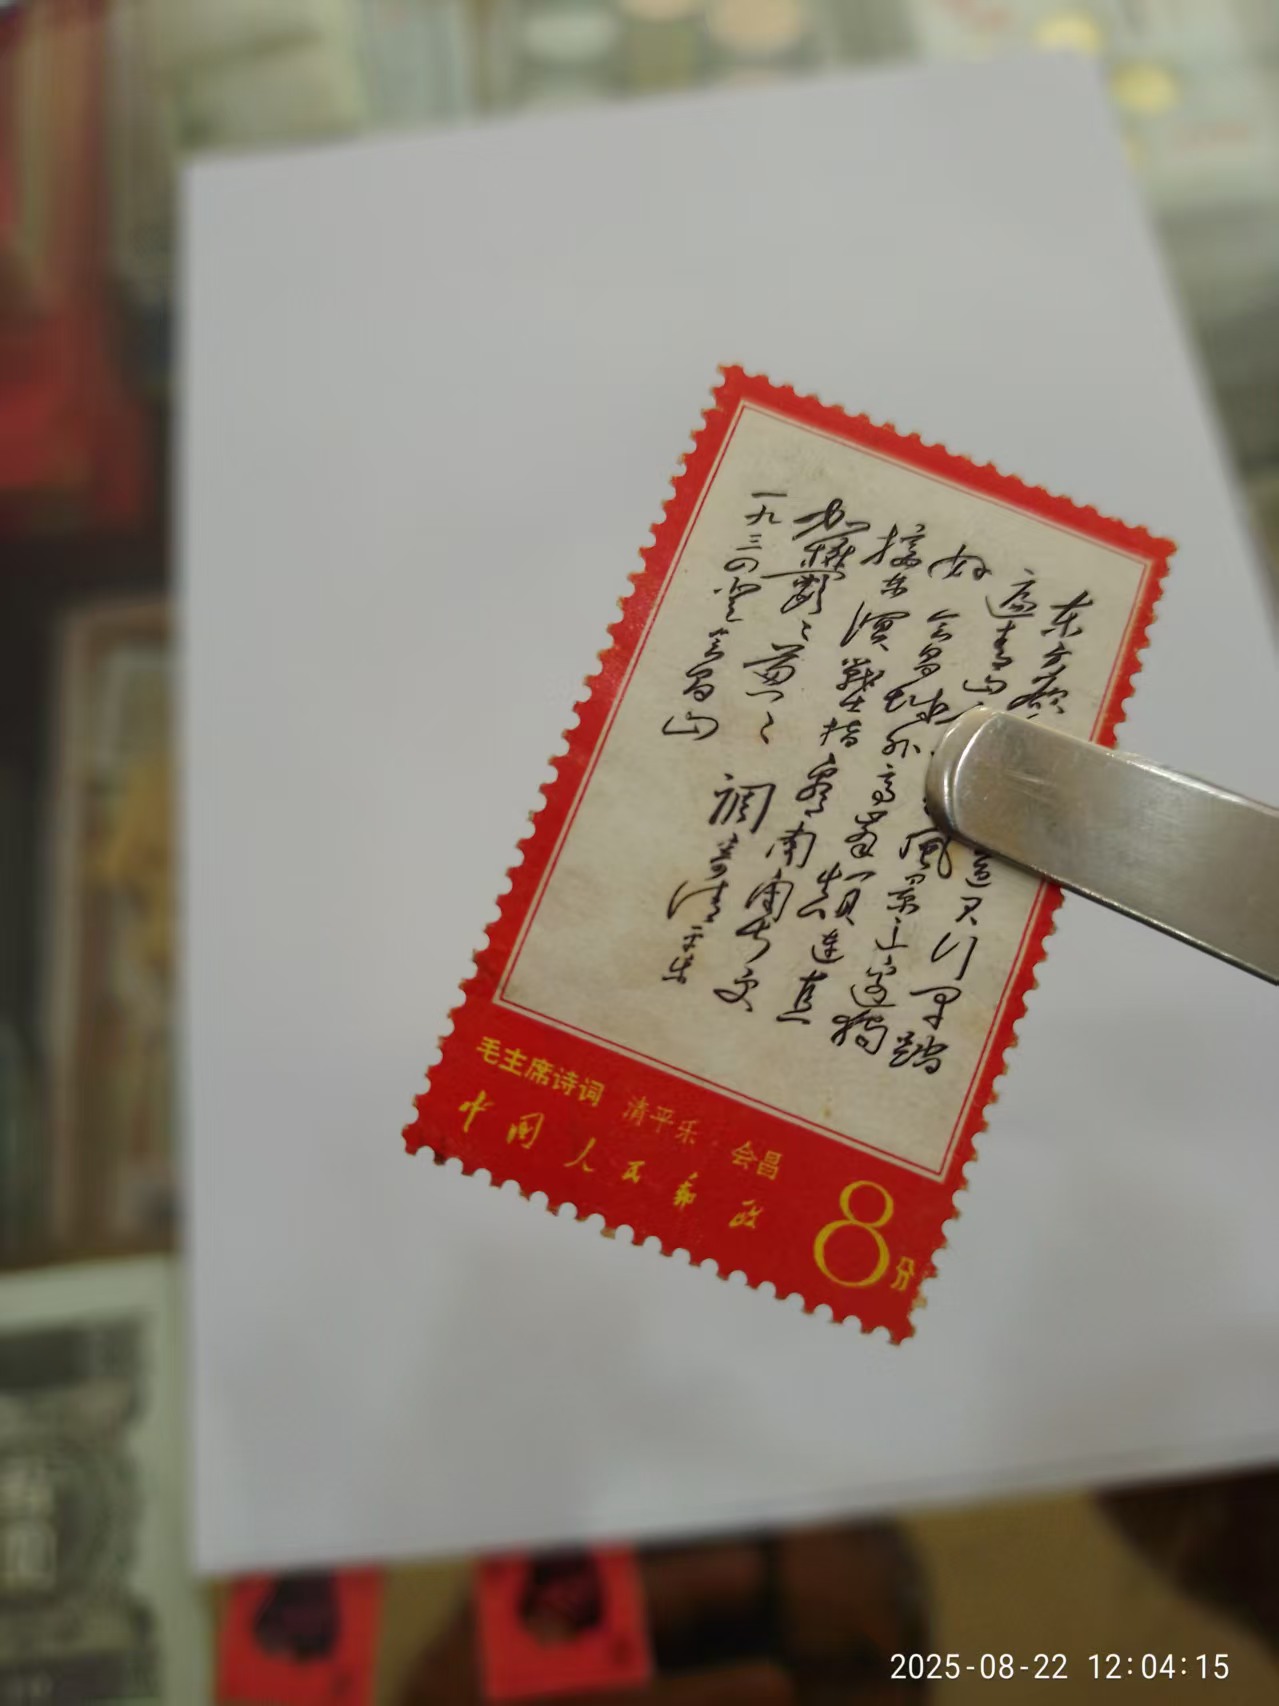 东方欲 君行早踏
遍青山 风景这邊独
好 会昌城外高峯颠连直
接东溟 战士指看南粤 更
加鬱々葱々 调寄清平乐
一九三四登会昌山
毛主席诗词 清平乐·会昌
中国人民邮政
8分
2025-08-22 12:04:15